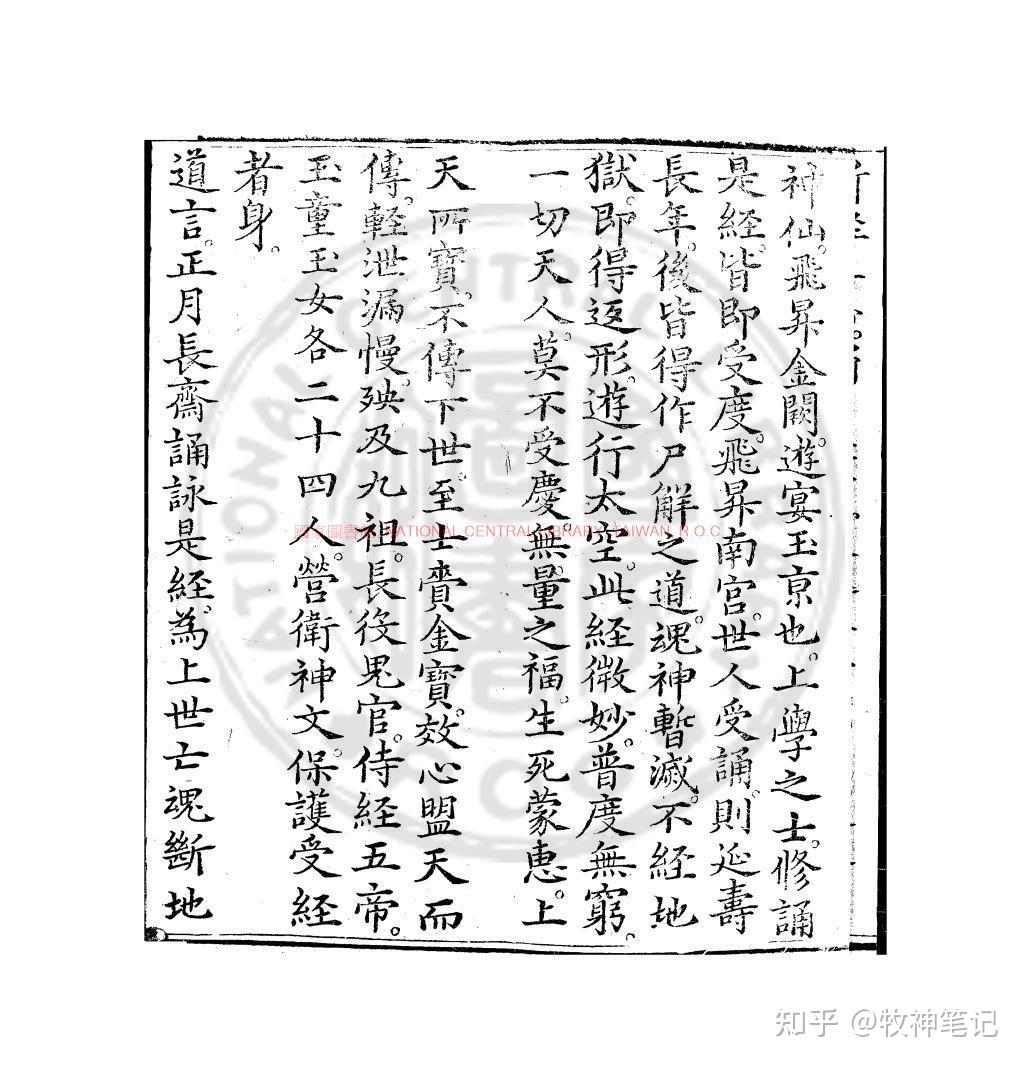 神仙。飛昇金闕。遊宴玉京也。上學之士。修誦
是經。皆即受度。飛昇南宫。世人受誦。則延壽
長年。後皆得作尸解之道。魂神暫滅。不經地
獄。即得返形。遊行太空。此經微妙。普度無窮。
一切天人。莫不受慶。無量之福。生死蒙惠。上
天所寶。不傳下世。至士賷金寶。效心盟天而
傳。軽泄漏慢。殃及九祖。長役鬼官。侍經五帝。
玉童玉女各二十四人。營衛神文。保護受經
者身。
道言。正月長齋誦詠是經。為上世亡魂斷地
國家圖書館 NATIONAL CENTRAL LIBRARY, TAIWAN, R.O.C
知乎 @牧神笔记